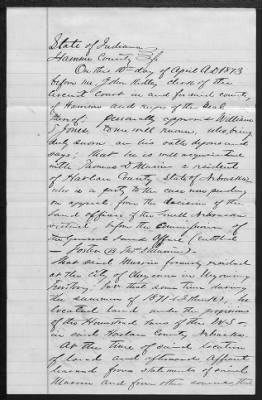 State of Indiana
County SS
On this 10th day of April A.D. 1873
before me John Ridley clerk of the
Circuit Court in and for said county
of and of the Seal
thereof: personally appeared William
E. Jones to me well known, who being
duly sworn on his oath deposes and
says: that he is well acquainted
with Thomas D. a resident
of Harlan County, State of Nebraska
who is a party to the case now pending
on appeal, from the decision of the
land officers of the Nebraska
district, before the Commissioner of
the General Land Office (entitled
Foster vs. Thos. D.
that said formerly resided
at the city of Cheyenne in Wyoming
Territory, but that some time during
the summer of 1871 he
located land under the provisions
of the Homestead laws of the U.S.
in said Harlan County Nebraska.
At the time of said location
of land and afterwards affiant
learned from statements of said
and from other sources, that